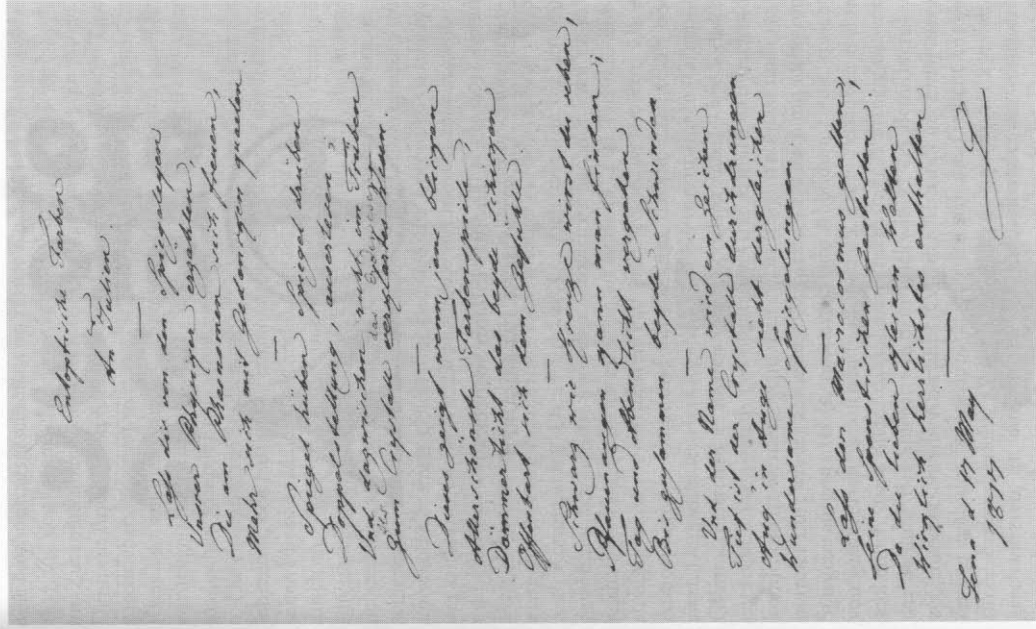 Entoptische Farben
An Julien.
Laß dir von den Spiegeleyen
Unsrer Physiker erzählen,
Die am Phänomen sich freuen,
Mehr sich mit Gedanken quälen.
Spiegel hüben Spiegel drüben
Doppelstellung, auserlesen;
Und dazwischen ruht im Trüben
Als das Erdewesen
Zum Crystall verglastes Wesen.
Dieses zeigt wenn jene blicken
Allerschönste Farbenspiele,
Dämmerlicht das beyde schicken
Offenbart sich dem Gefühle
Schwarz wie Kreuze wirst du sehen,
Pfauenaugen kann man finden;
Tag und Abendlicht vergehen
Bis zusammen beyde schwinden
Und der Name wird ein Zeichen
Tief ist der Crystall durchdrungen
Aug in Auge sieht dergleichen
Wundersame Spiegelungen
Laß den Macrocosmus gelten,
Seine spenstischen Gestalten!
Da die lieben kleinen Welten
Wirklich herrlichstes enthalten
Jena d 17 May
1817
G